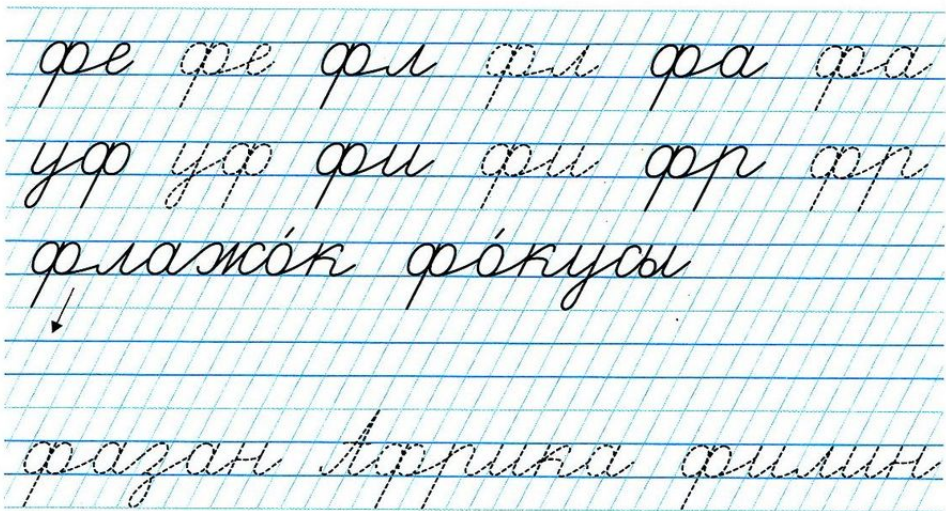 фе фе фл фл фа фа
уф уф фи фи фр фр
флажо́к фо́кусы
фазан Африка филин